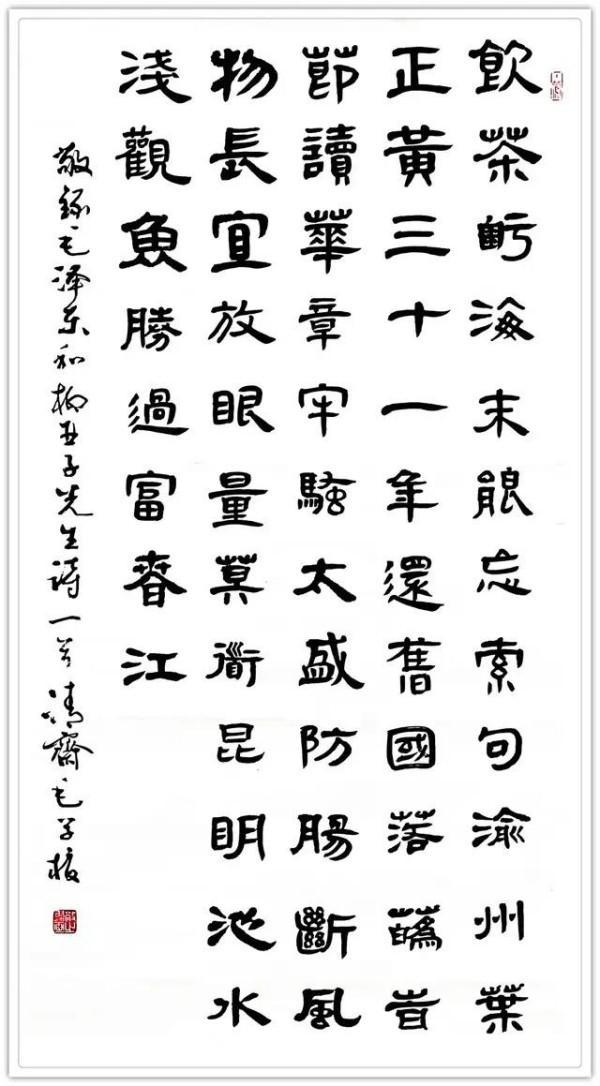 飲茶海未能忘索句渝州葉
正黃三十一年還舊國落蘤旹
節讀華章牢騷太盛防腸斷風
物長宜放眼量莫衜昆明池水
淺觀魚勝過富春江
敬錄毛泽东和柳亚子先生詩一首清齋毛学